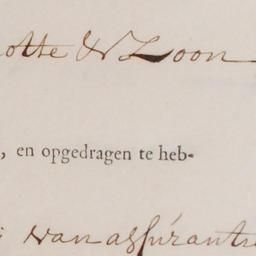 otte & Zoon
, en opgedragen te heb-
van assurantie